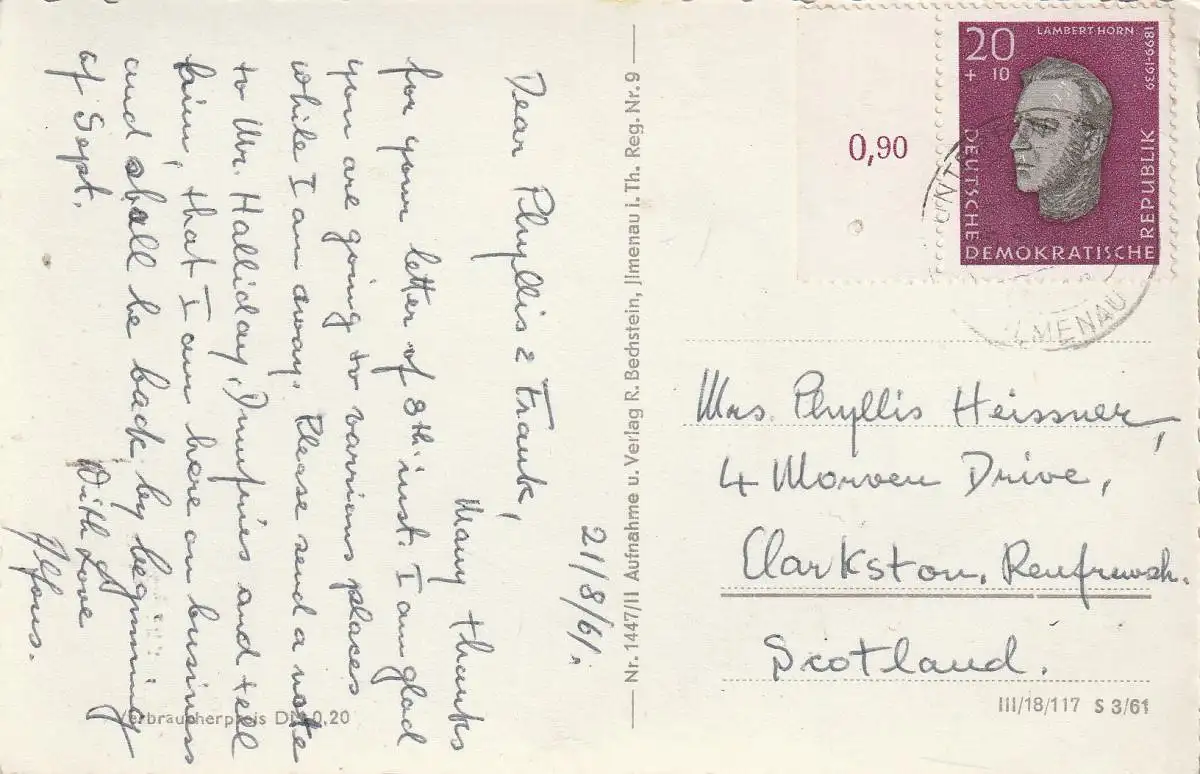 21/8/61.
Dear Phyllis & Frank,
Many thanks
for your letter of 8th inst. I am glad
you are going to various places
while I am away. Please send a note
to Mr. Halliday, Dumfries and tell
him, that I am here on business
and shall be back by beginning
of Sept.
With Love
Alfons.
Verbraucherpreis DM 0,20
Nr. 1447/II Aufnahme u. Verlag R. Bechstein, Jlmenau i. Th. Reg. Nr. 9
0,90
20
+ 10
LAMBERT HORN
1899-1939
DEUTSCHE
DEMOKRATISCHE
REPUBLIK
ILMENAU
Mrs. Phyllis Heissner,
4 Morven Drive,
Clarkston, Renfrewsh.
Scotland.
III/18/117 S 3/61